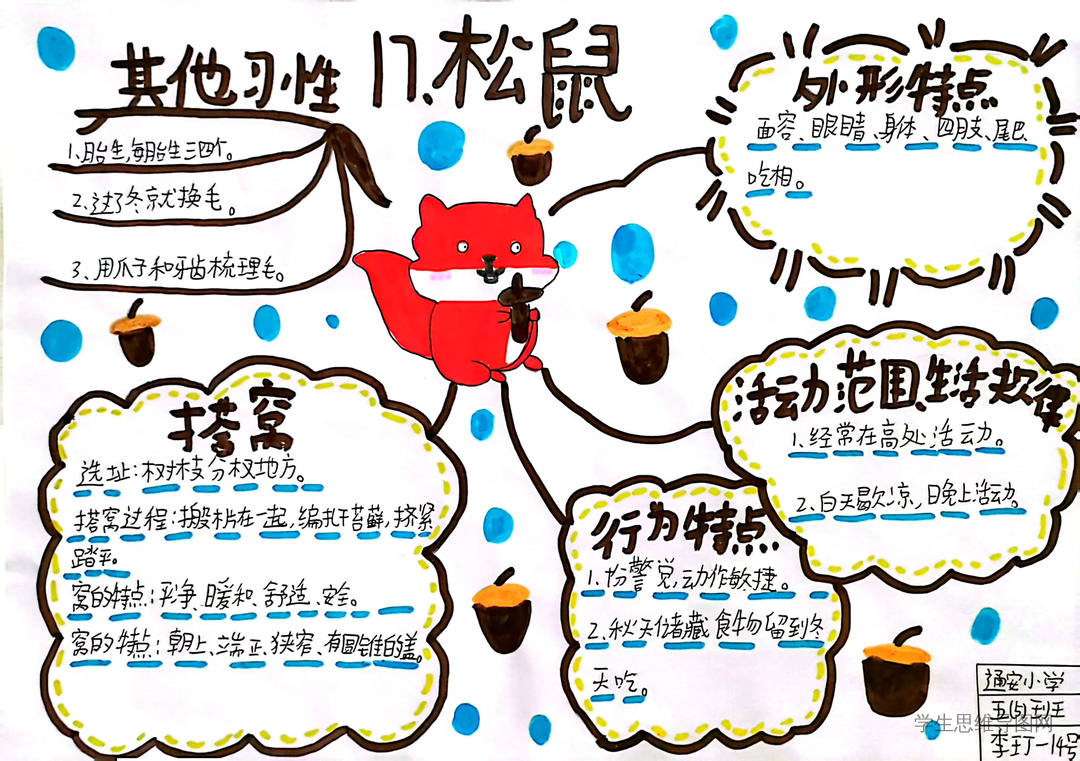 17.松鼠
其他习性
1.胎生,每胎生三四个。
2.过了冬京尤换毛。
3、用爪子和牙齿梳理毛。
外形特点
面容、眼睛、身体、四肢、尾巴
吃相。
活动范围、生活规律
1.经常在高处活动。
2、白天歇凉,日晚上活动。
搭窝
选址:树枝分杈地方。
搭窝过程:搬木片在一起,编扎干苔藓,挤紧
踏平。
窝的特点:干净、暖和、舒适、安全。
窝的特点:朝上、端正、狭窄、有圆锥的盖。
行为特点
1.警觉,动作敏捷。
2、秋天储藏食物留到冬
天吃。
通安小学
五(5)班
李玎一14号
学生思维导图网